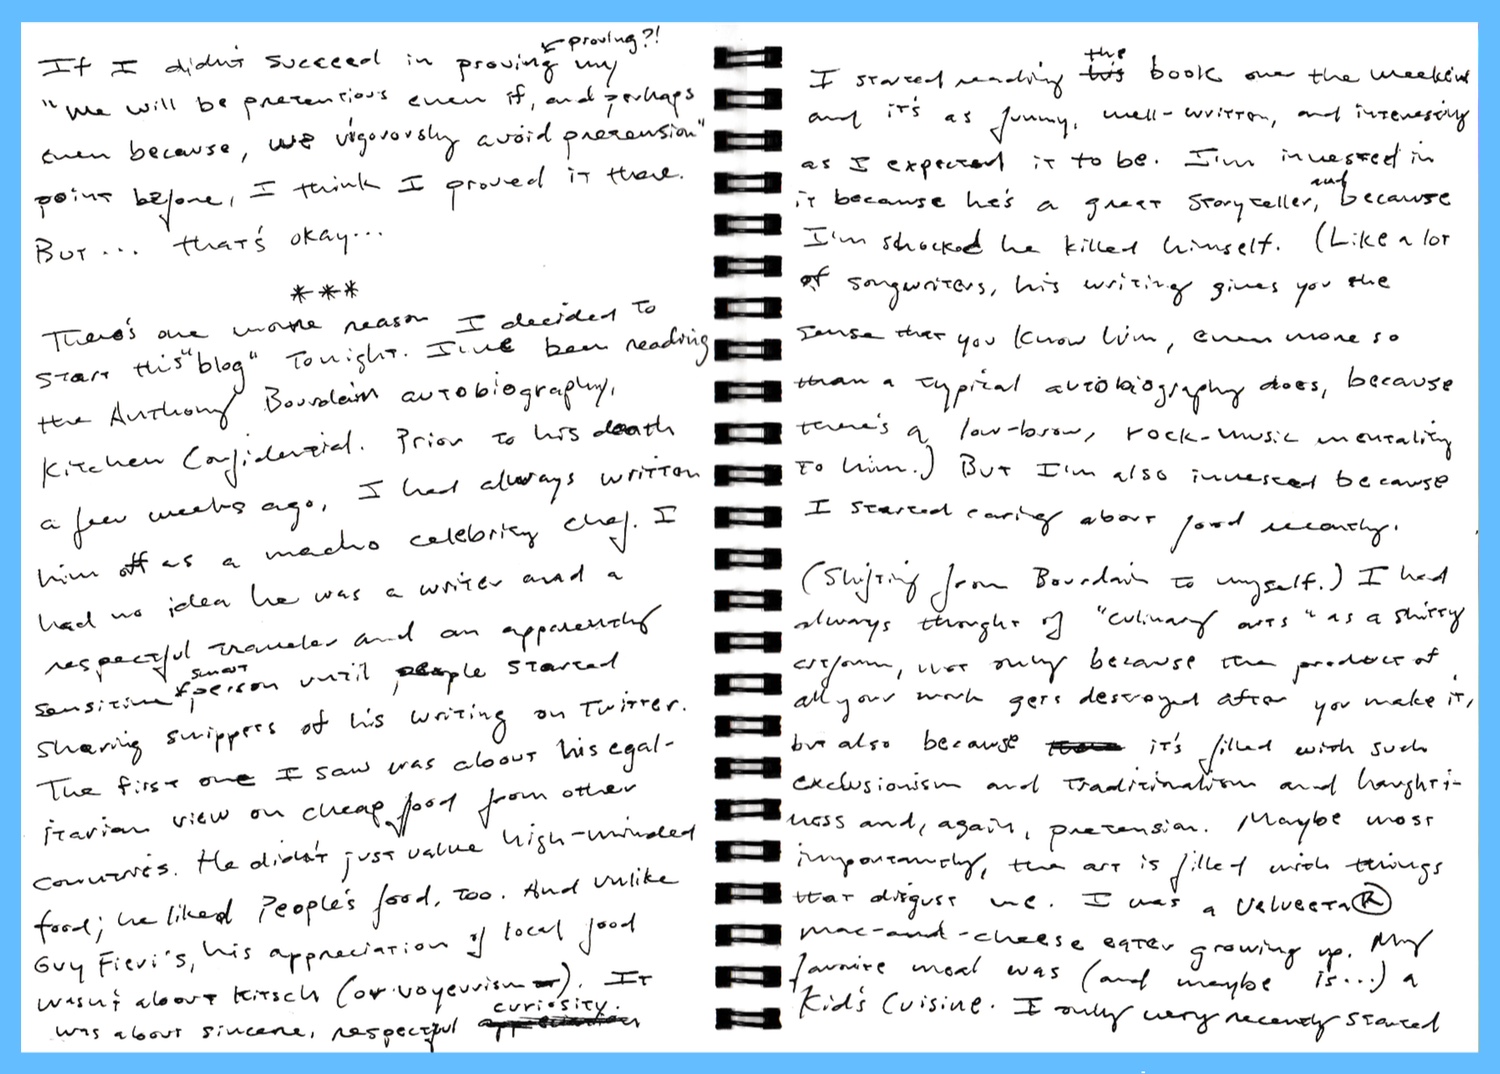 ← proving?!
If I didn't succeed in proving my
"we will be pretentious even if, and perhaps
even because, we vigorously avoid pretension"
point before, I think I proved it there.
But... that's okay...
***
There's one more reason I decided to
start this "blog" tonight. I've been reading
the Anthony Bourdain autobiography,
Kitchen Confidential. Prior to his death
a few weeks ago, I had always written
him off as a macho celebrity chef. I
had no idea he was a writer and a
respectful traveler and an apparently
smart
sensitive person until people started
sharing snippets of his writing on Twitter.
The first one I saw was about his egal-
itarian view on cheap food from other
countries. He didn't just value high-minded
food; he liked People's food, too. And unlike
Guy Fieri's, his appreciation of local food
wasn't about kitsch (or voyeurism). It
curiosity.
was about sincere, respectful
the
I started reading this book over the weekend
and it's as funny, well-written, and interesting
as I expected it to be. I'm invested in
and
it because he's a great storyteller, because
I'm shocked he killed himself. (Like a lot
of songwriters, his writing gives you the
sense that you know him, even more so
than a typical autobiography does, because
there's a low-brow, rock-music mentality
to him.) But I'm also invested because
I started caring about food recently.
(Shifting from Bourdain to myself.) I had
always thought of "culinary arts" as a shitty
artform, not only because the product of
all your work gets destroyed after you make it,
but also because it's filled with such
exclusionism and traditionalism and haughti-
ness and, again, pretension. Maybe most
importantly, the art is filled with things
that disgust me. I was a Velveeta®
mac-and-cheese eater growing up. My
favorite meal was (and maybe is...) a
Kid's Cuisine. I only very recently started